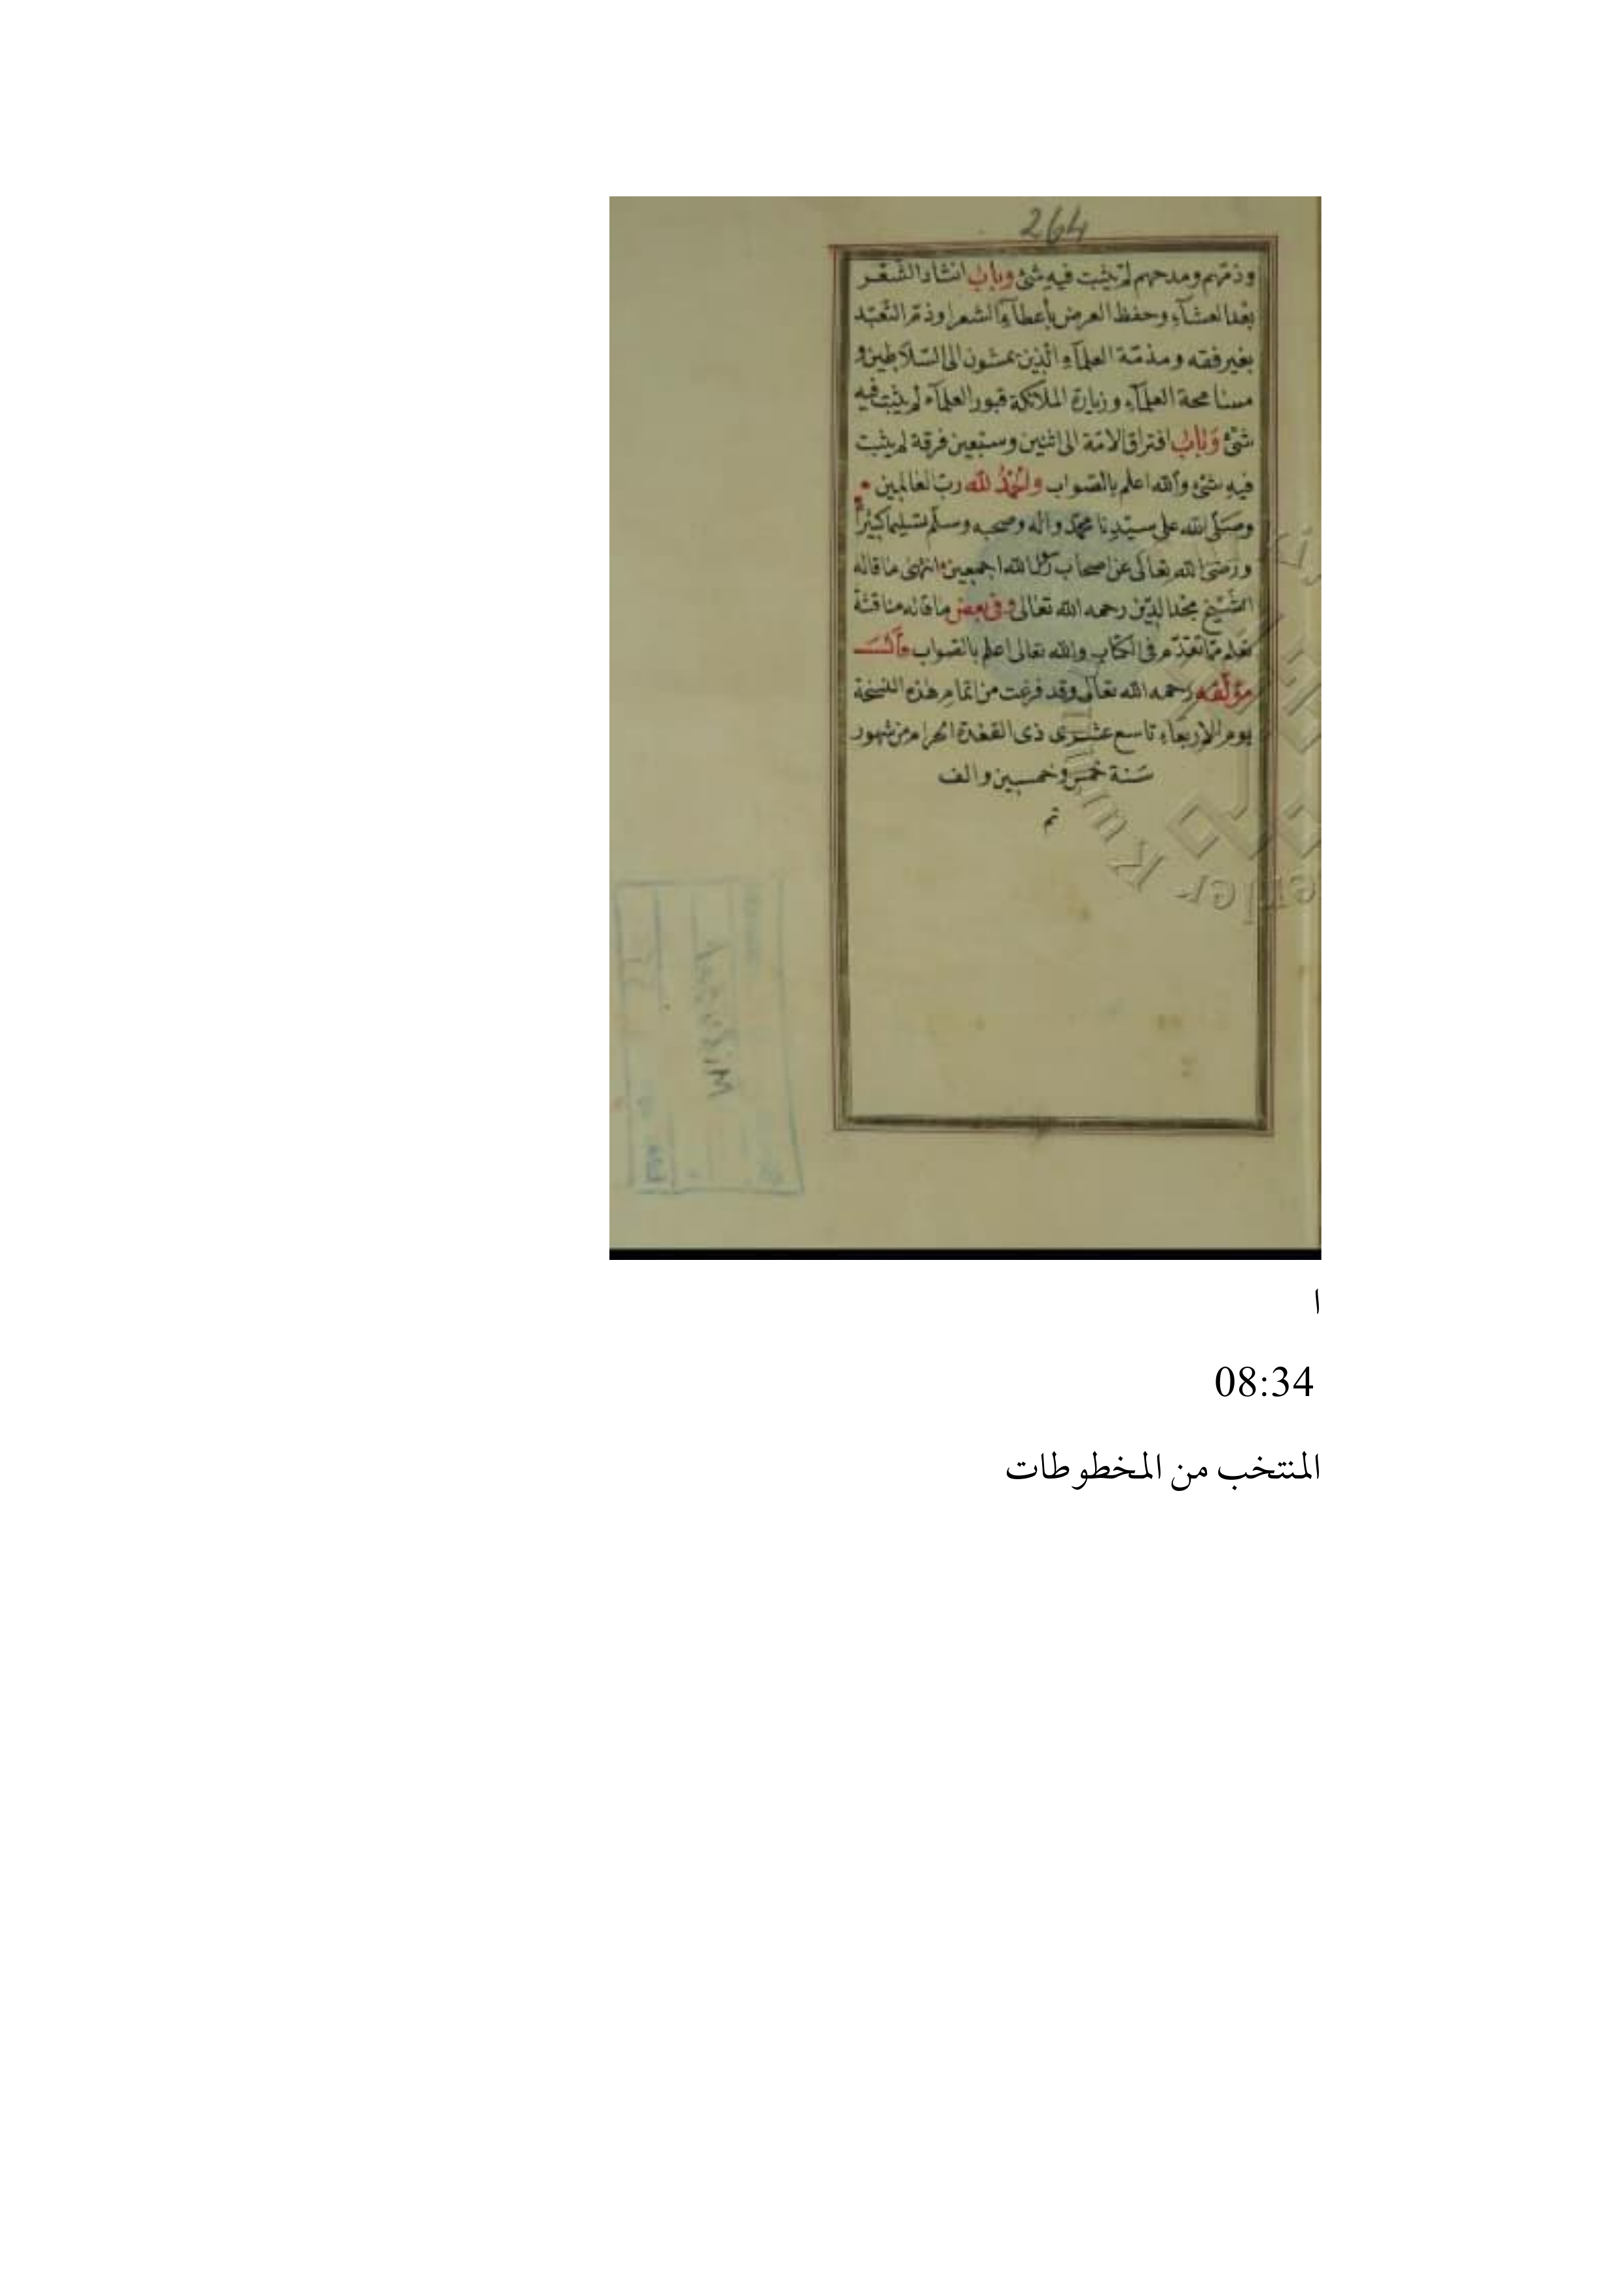 264
وذمّهم ومدحهم لم يثبت فيه شئ وباب انشاد الشّعر
بعد العشآء وحفظ العرض بأعطآء الشعرا وذمّ التّعبّد
بغير فقه ومذمّة العلمآء الّذين يمشون الى السّلاطين و
مسامحة العلمآء وزيارة الملآئكة قبور العلمآء لم يثبت فيه
شئ وباب افتراق الامّة الى اثنين وسبعين فرقة لم يثبت
فيه شئ والله اعلم بالصواب والحمد لله ربّ العالمين
وصلّى الله على سيّدنا محمّد واله وصحبه وسلّم تسليما كثيرا
ورضى الله تعالى عن اصحاب رسول الله اجمعين انتهى ما قاله
الشّيخ مجد الدّين رحمه الله تعالى وفى بعض ما قاله مناقشة
تعلم ممّا تقدّم فى الكتاب والله تعالى اعلم بالصواب قال
مؤلّفه رحمه الله تعالى وقد فرغت من اتمام هذه النسخة
يوم الاربعآء تاسع عشرى ذى القعدة الحرام من شهور
سنة خمس وخمسين والف
تم
ا
08:34
المنتخب من المخطوطات